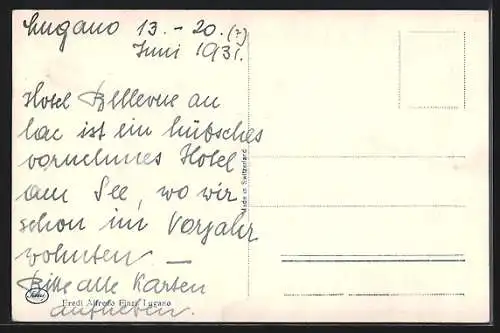 Lugano 13. - 20. (?)
Juni 1931.
Hotel Bellevue au
lac ist ein hübsches
vornehmes Hotel
am See, wo wir
schon im Vorjahr
wohnten —
Bitte alle Karten
aufheben.
Made in Switzerland
Eredi Alfredo Finzi Lugano